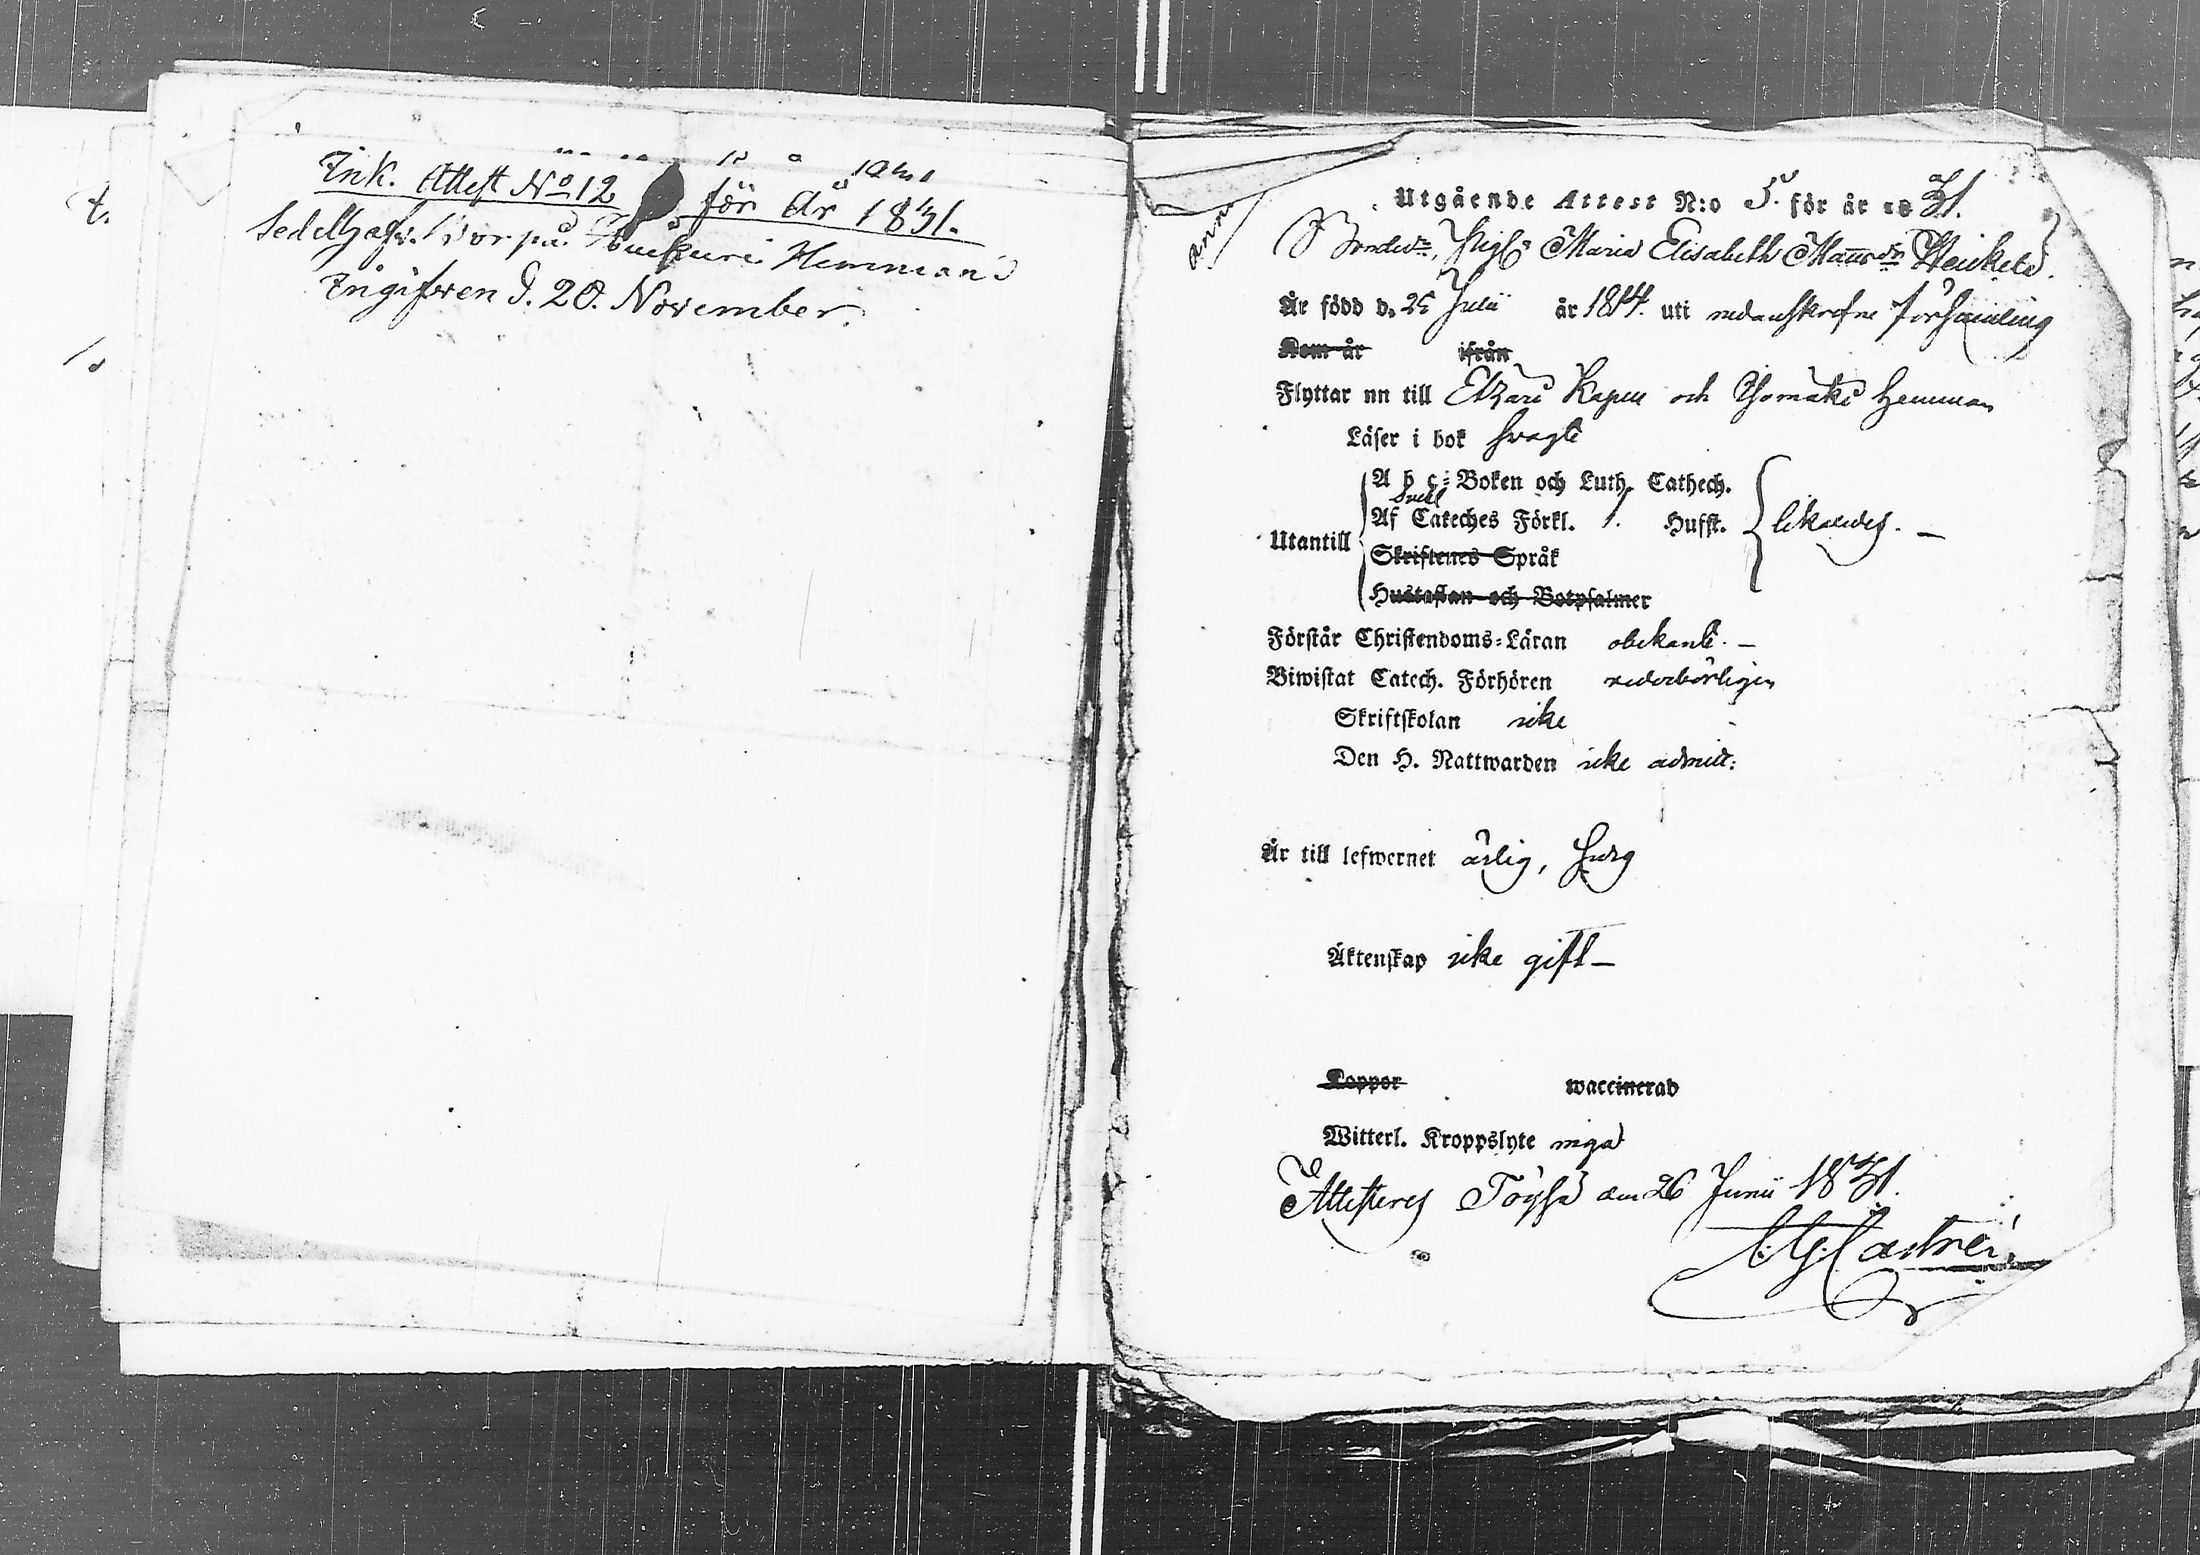 Ink. Attest No 12 för År 1831.
Sedelhafv. bor på Hemman
Ingifven d. 20. November.
Utgående Attest N:o 5. för år 1831.
Bonded:r, Pig:n Maria Elisabeth Matsd:r
Är född d. 25 Julii år 1814. uti nedanskrefne församling
Kom år ifrån
Flyttar nu till Etzäri Kapell och hemman
Läser i bok svagt
A b c-Boken och Luth. Cathech.
Svebel
Af Cateches Förkl. 1. Hufst. likaledes. —
Utantill
Skriftenes Språk
Hustaflan och Botpsalmer
Förstår Christendoms-Läran obekant. —
Biwistat Catech. Förhören vederbörligen
Skriftskolan icke
Den H. Nattwarden icke admitt:
Är till lefwernet ärlig,
Äktenskap icke gift —
Koppor waccinerad
Witterl. Kroppslyte inga
Attesteres Töysä den 26 Junii 1831.
C. G. Castrén